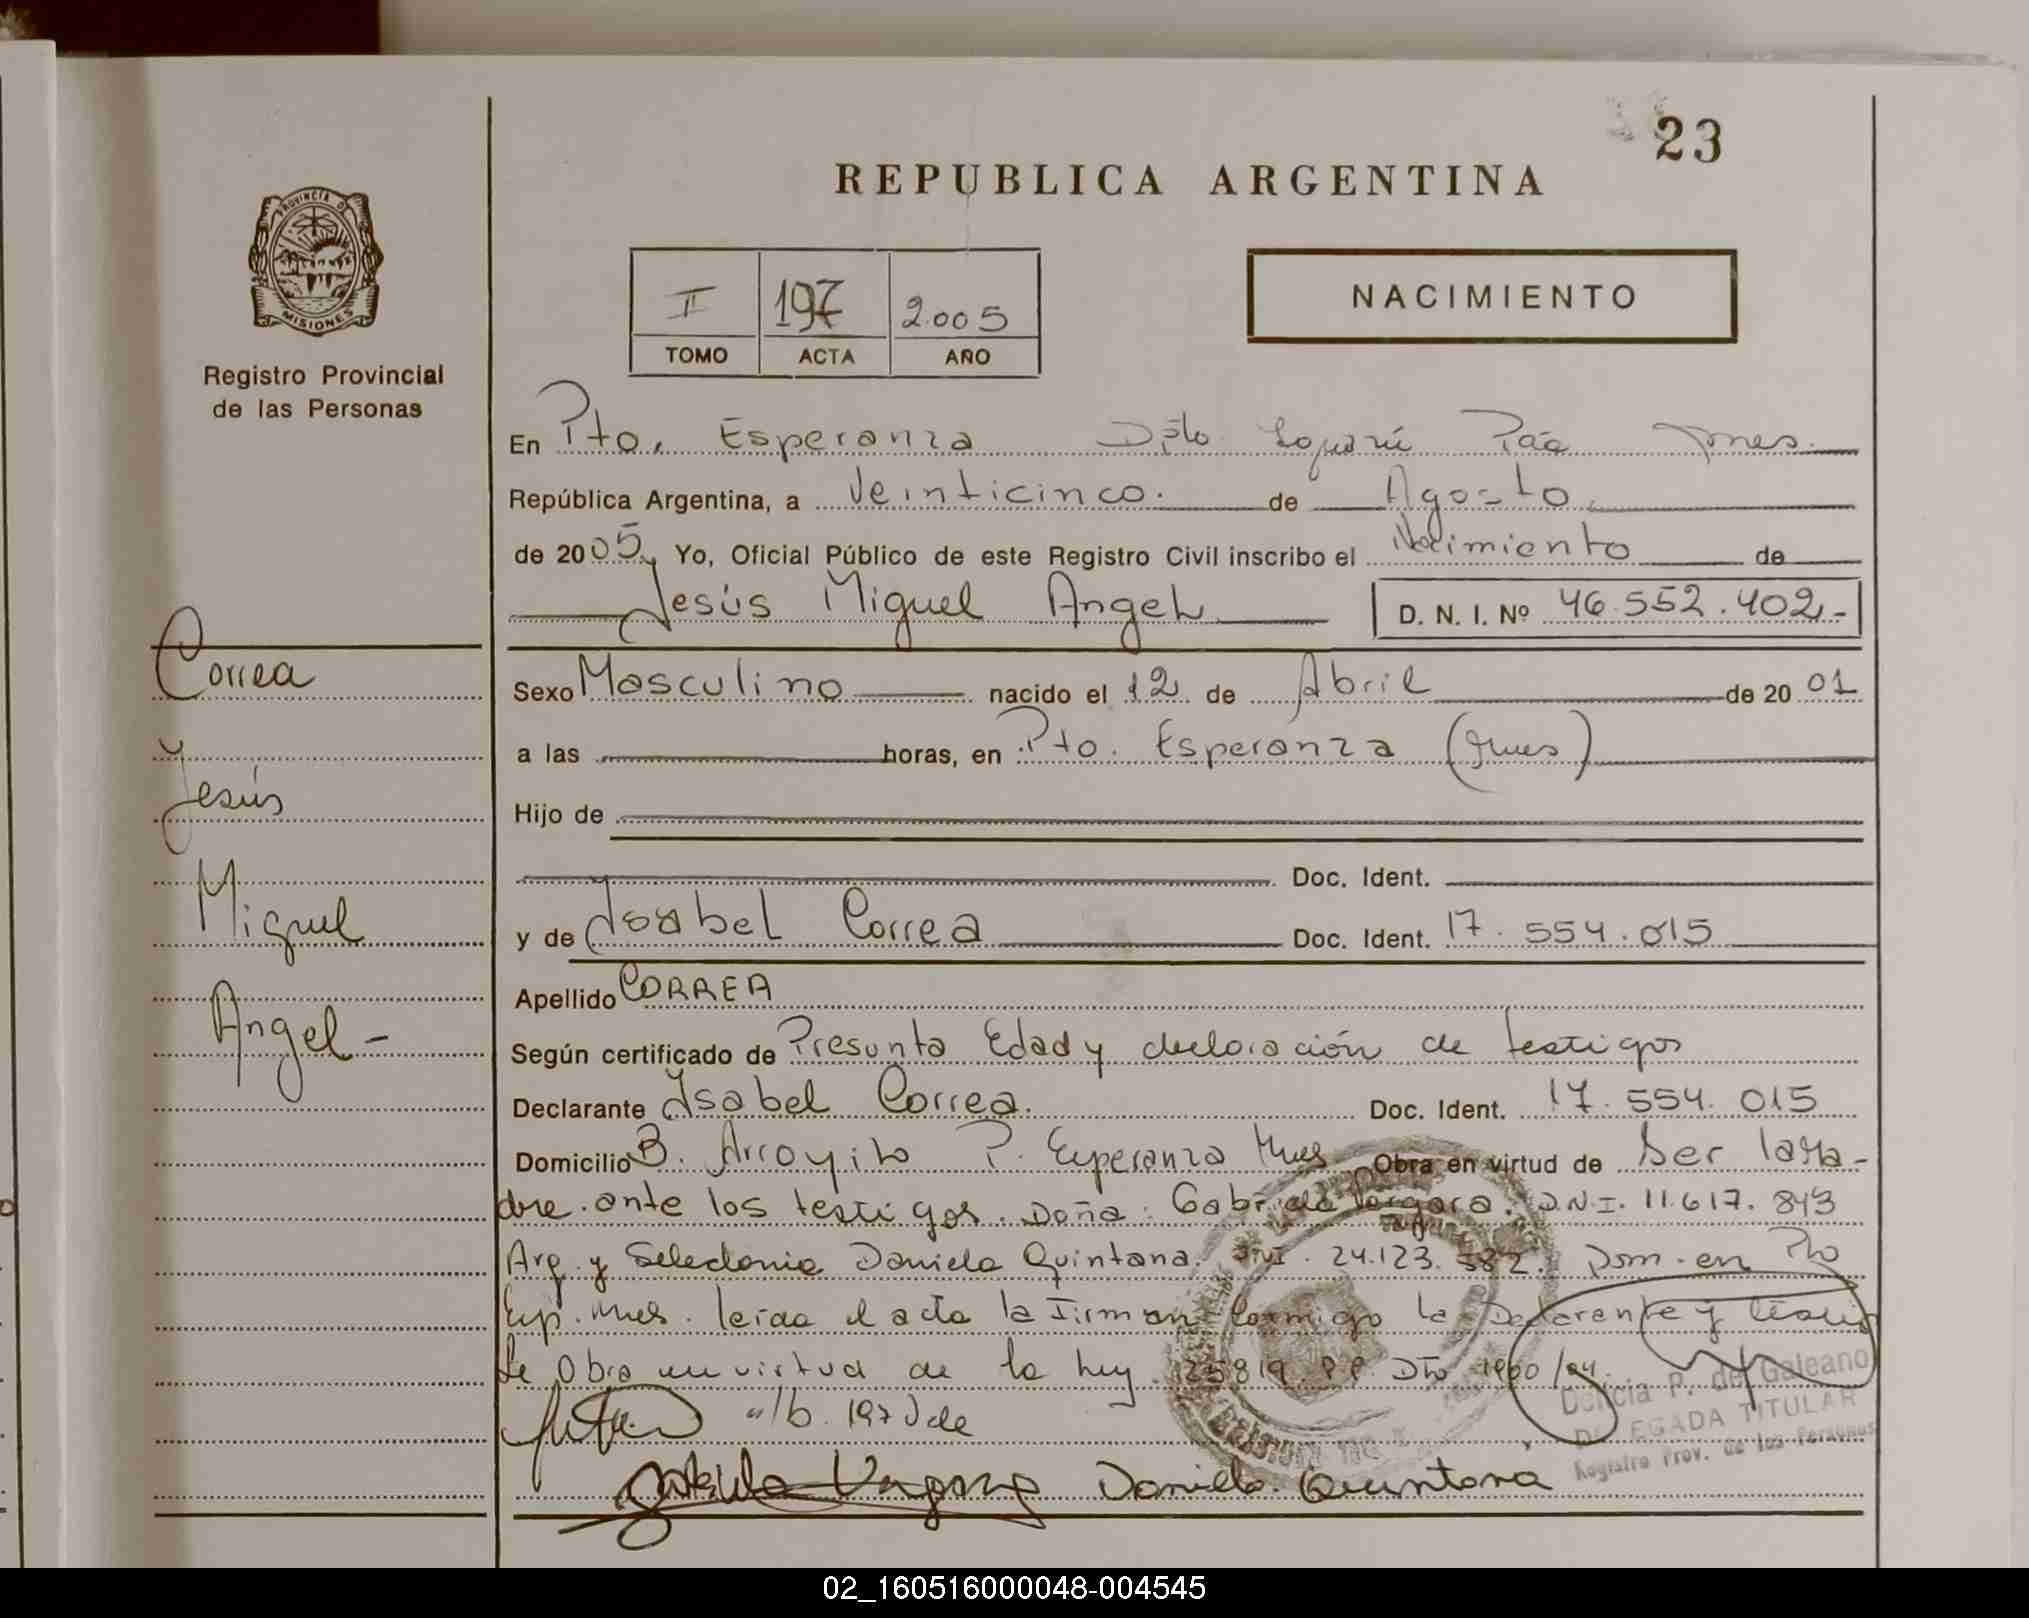 23
REPUBLICA ARGENTINA
PROVINCIA DE
MISIONES
Registro Provincial
de las Personas
NACIMIENTO
II 197 2.005
TOMO ACTA AÑO
En Pto. Esperanza Dpto Iguazú Pcia Mnes.
República Argentina, a Veinticinco. de Agosto
de 2005, Yo, Oficial Público de este Registro Civil inscribo el Nacimiento de
Jesús Miguel Angel D. N. I. Nº 46.552.402-
Correa
Jesús
Miguel
Angel-
Sexo Masculino nacido el 12 de Abril de 2001
a las horas, en Pto. Esperanza (Mnes)
Hijo de
Doc. Ident.
y de Isabel Correa Doc. Ident. 17.554.015
Apellido CORREA
Según certificado de Presunta Edad y declaración de testigos
Declarante Isabel Correa. Doc. Ident. 17.554.015
Domicilio B. Arroyito P. Esperanza Mnes Obra en virtud de Ser la Ma-
dre. ante los testigos. Doña: Gabriela Vergara. D.N.I. 11.617.843
Arg. y Seledonia Daniela Quintana. DNI. 24.123.582. Dom. en Pto
Esp. Mnes. leida el acta la Firman conmigo la Declarante y testigos
Se Obra en virtud de la ley 25819 Dto 1900/04.
197 Vale
Delicia P. de Galeano
DELEGADA TITULAR
Registro Prov. de las Personas
Gabriela Vergara Daniela Quintana
02_160516000048-004545